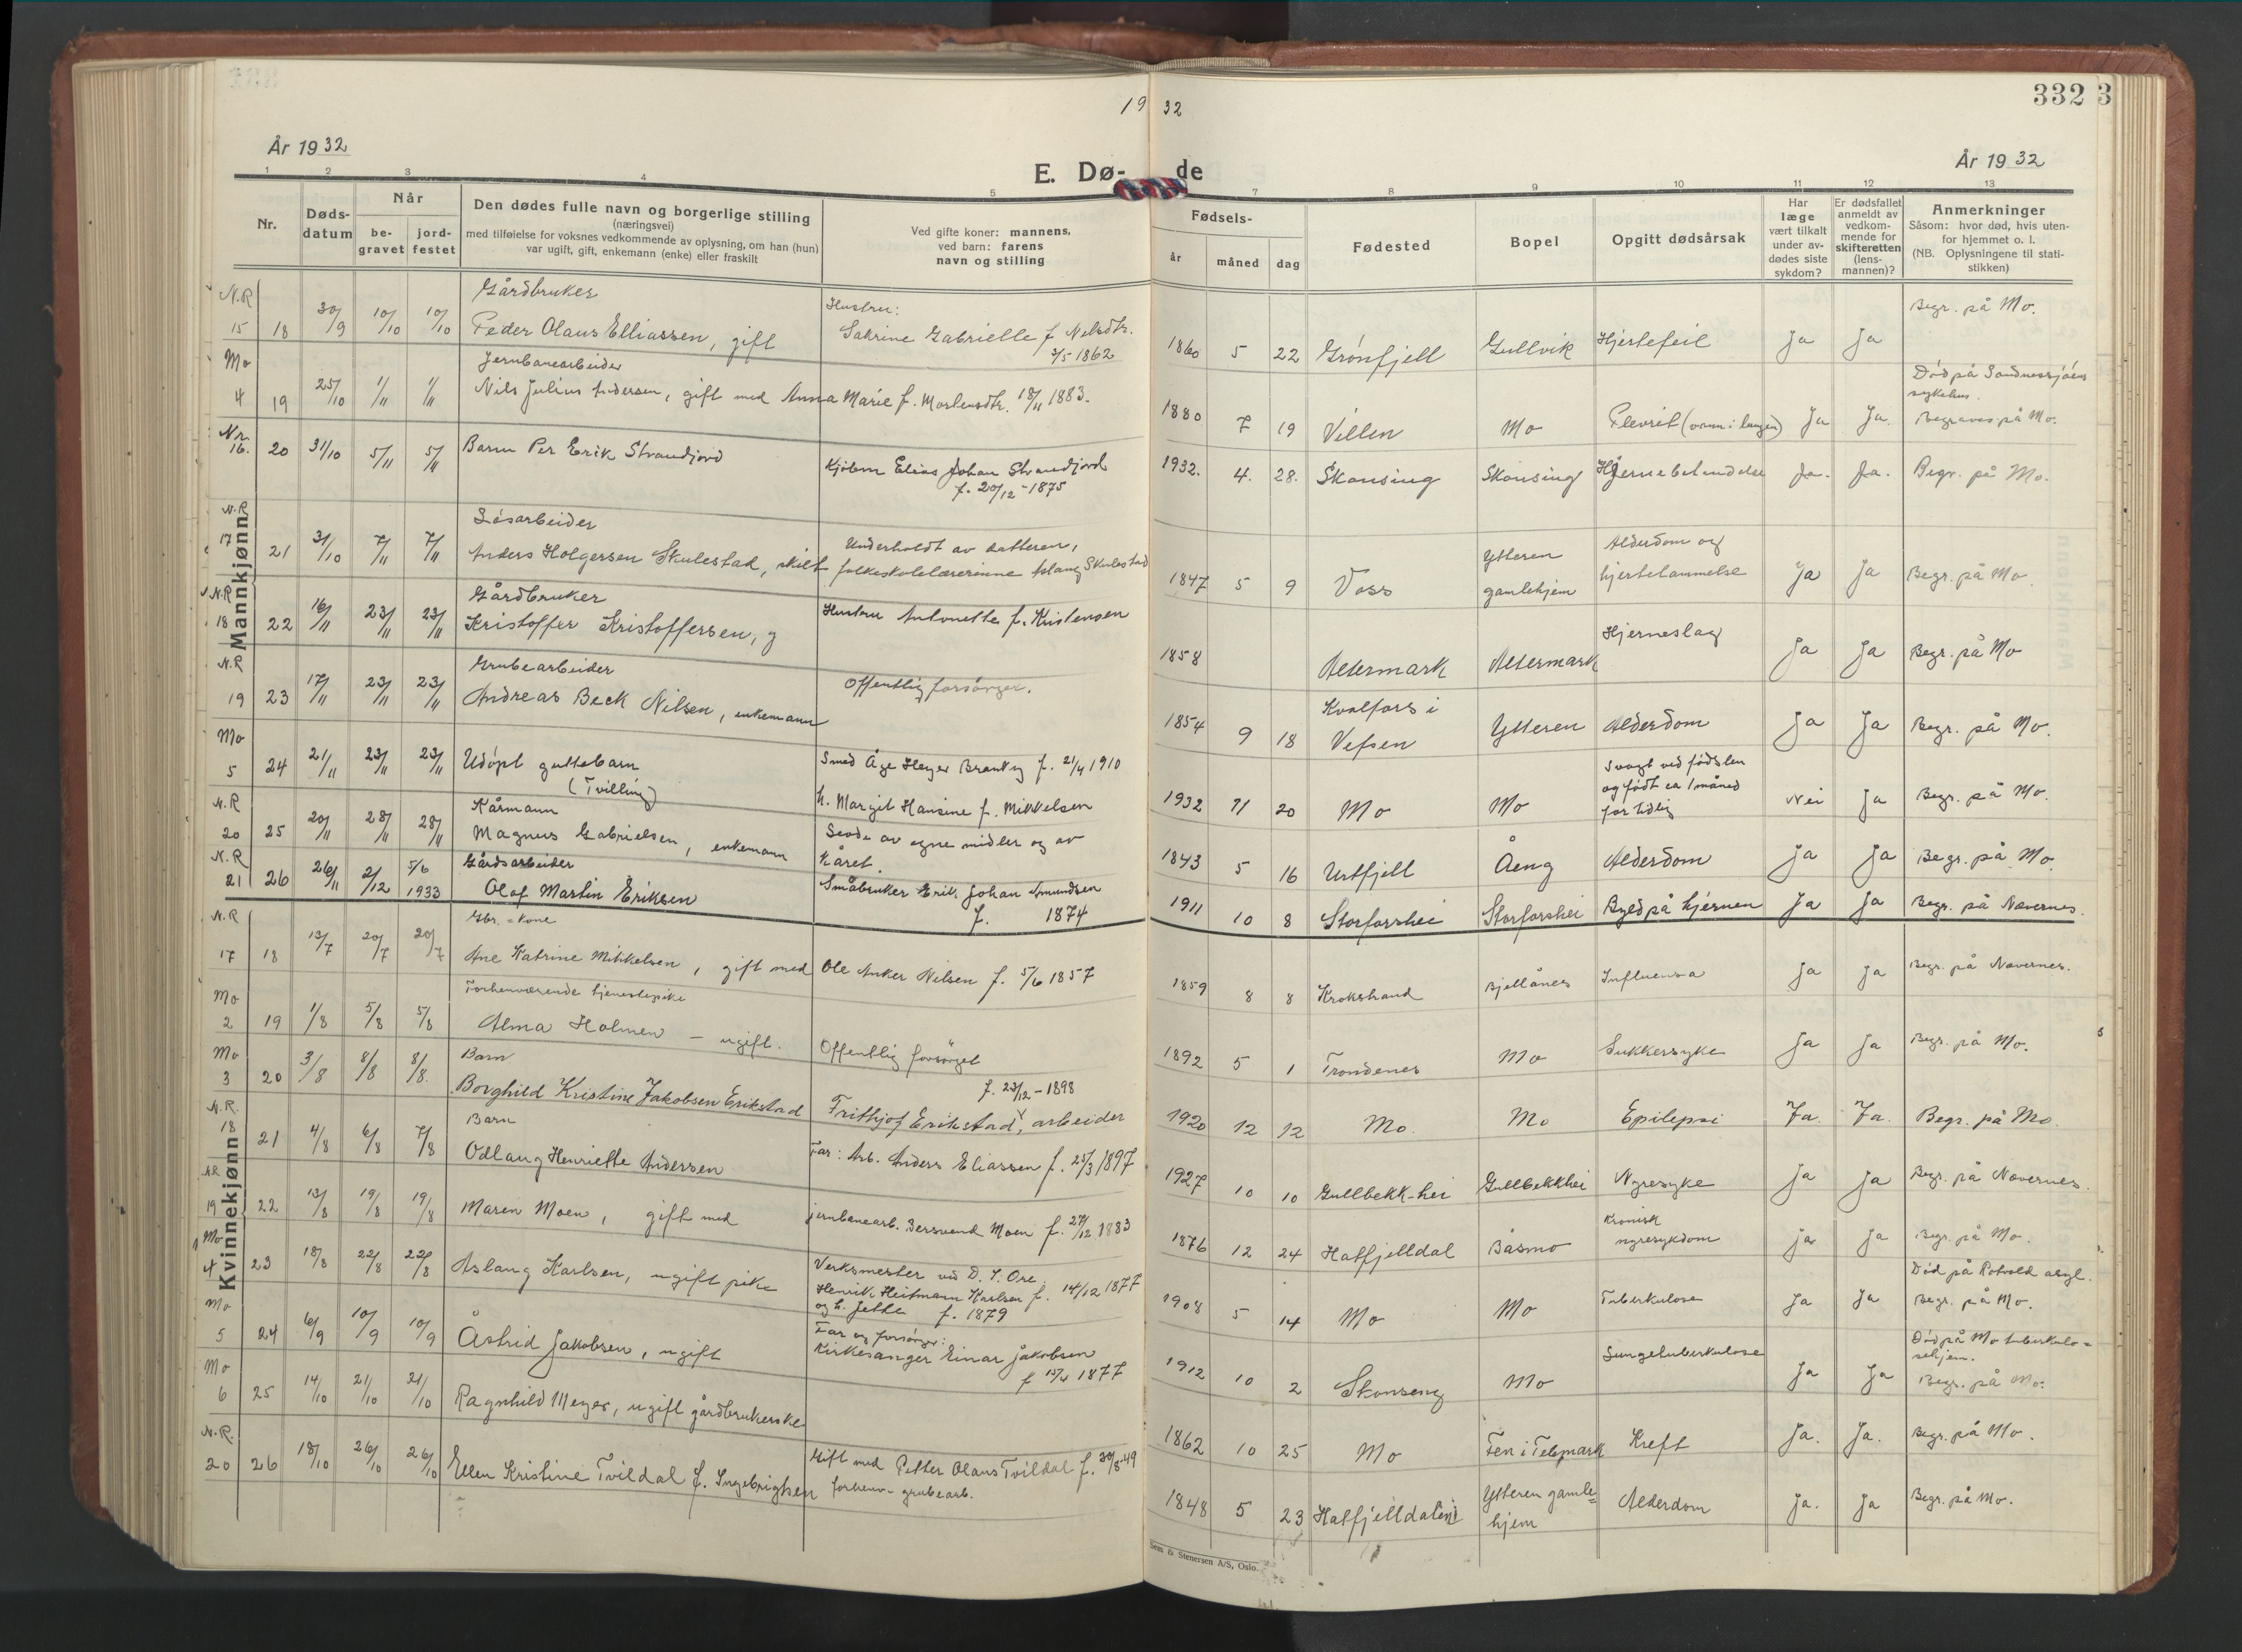 19 32
332
3
År 1932
År 1932
E. Dø- de
1 2 3 4 5 7 8 9 10 11 12 13
Nr.
Døds-
datum
Når
be-
gravet
jord-
festet
Den dødes fulle navn og borgerlige stilling
(næringsvei)
med tilføielse for voksnes vedkommende av oplysning, om han (hun)
var ugift, gift, enkemann (enke) eller fraskilt
Ved gifte koner: mannens,
ved barn: farens
navn og stilling
Fødsels-
år måned dag
Fødested
Bopel
Opgitt dødsårsak
Har
læge
vært tilkalt
under av-
dødes siste
sykdom?
Er dødsfallet
anmeldt av
vedkom-
mende for
skifteretten
(lens-
mannen)?
Anmerkninger
Såsom: hvor død, hvis uten-
for hjemmet o. l.
(NB. Oplysningene til stati-
stikken)
Mannkjønn
N.R Gårdbruker Hustru: Begr. på Mo.
15 18 30/9 10/10 10/10 Peder Olaus Elliassen, gift Sakrine Gabrielle f. Nelsdtr. 1860 5 22 Grønfjell Gullvik Hjertefeil Ja Ja
3/5 1862
Mo Jernbanearbeider Død på Sandnessjøen
sykehus.
4 19 25/10 1/11 1/11 Nils Julius Andersen, gift med Anna Marie f. Mortensdtr. 18/11 1883. 1880 7 19 Villen Mo Plevrit (vann i lungen) Ja Ja. Begraves på Mo.
Nr.
16. 20 31/10 5/11 5/11 Barn Per Erik Strandjord Kjøbm Elias Johan Strandjord 1932. 4. 28. Skonsing Skonsing Hjernebetendelse Ja. Ja. Begr. på Mo.
f. 20/12-1875
N.R Løsarbeider Underholdt av datteren, Ytteren Alderdom og
17 21 31/10 7/11 7/11 Anders Holgersen Skulestad, skilt folkeskolelærerinne Aslaug Skulestad 1847 5 9 Voss gamlehjem hjertelammelse Ja Ja Begr. på Mo.
N.R Gårdbruker Hjerneslag
18 22 16/11 23/11 23/11 Kristoffer Kristoffersen, g Hustru Antonette f. Kristensen 1858 Altermark Altermark Ja Ja Begr. på Mo
N.R Grubearbeider Kvalfors i
19 23 17/11 23/11 23/11 Andreas Beck Nilsen, enkemann Offentlig forsørger. 1854 9 18 Vefsen Ytteren Alderdom Ja Ja Begr. på Mo.
Mo Svagt ved fødslen
5 24 21/11 23/11 23/11 Udøpt guttebarn Smed Åge Heyer f. 21/4 1910 1932 11 20 Mo Mo og født ca 1 måned Nei Ja Begr. på Mo.
(Tvilling) h. Margit Hansine f. Mikkelsen for tidlig
N.R Kårmann Levde av egne midler og av
20 25 20/11 28/11 28/11 Magnus Gabrielsen, enkemann kåret. 1843 5 16 Urtfjell Åeng Alderdom Ja Ja Begr. på Mo.
N.R Gårdsarbeider
21 26 26/11 2/12 5/6 1933 Olaf Martin Eriksen Småbruker Erik Johan Amundsen 1911 10 8 Storforshei Storforshei Byld på hjernen Ja Ja Begr. på Nævernes.
f. 1874
Kvinnekjønn
N.R Gbr.=kone
17 18 13/7 20/7 20/7 Ane Katrine Mikkelsen, gift med Ole Anker Nilsen f. 5/6 1857 1859 8 8 Krokstrand Bjellånes Influensa Ja Ja Begr. på Nævernes.
Mo Forhenværende tjenestepike
2 19 1/8 5/8 5/8 Alma Holmen – ugift. Offentlig forsørget 1892 5 1 Trondenes Mo Sukkersyke Ja Ja Begr. på Mo.
Mo Barn f. 23/12-1898
3 20 3/8 8/8 8/8. Borghild Kristine Jakobsen Erikstad Frithjof Erikstad, arbeider 1920 12 12 Mo. Mo Epilepsi Ja. Ja. Begr. på Mo.
N.R. Barn
18 21 4/8 6/8 7/8 Odlaug Henriette Andersen Far: Arb. Anders Eliassen f. 25/3 1897 1927 10 10 Gullbekk-hei Gullbekkhei Nyresyke Ja Ja Begr. på Nævernes.
N.R. Kronisk
19 22 13/8 19/8 19/8 Maren Moen, gift med jernbanearb. Bersvend Moen f. 27/12 1883 1876 12 24 Hatfjelldal Båsmo nyresykdom ja ja Begr. på Mo.
Mo Verksmester ved D. I. Ore. Død på Rotvold asyl.
4 23 18/8 22/8 22/8 Aslaug Karlsen, ugift pike Henrik Heitmann Karlsen f. 14/12 1877 1908 5 14 Mo Mo Tuberkulose Ja Ja Begr. på Mo.
og h. Jette f. 1879
Mo Far og forsørger: Lungetuberkulose Død på Mo tuberkulo=
sehjem.
5 24 6/9 10/9 10/9 Åstrid Jakobsen, ugift Kirkesanger Einar Jakobsen 1912 10 2 Skonseng Mo Ja Ja Begr. på Mo.
f 15/4 1877
Mo
6 25 14/10 21/10 21/10 Ragnhild Meyer, ugift gårdbrukerske 1862 10 25 Mo Fen i Telemark Kreft Ja. Ja. Begr. på Mo.
N.R. Gift med Petter Olaus Tvildal f. 30/8 49 Ytteren gamle=
20 26 18/10 26/10 26/10 Ellen Kristine Tvildal f. Ingebrigtsen forhenv. grubearb. 1848 5 23 Hatfjelldalen hjem Alderdom ja. ja Begr. på Mo.
Sem & Stenersen A/S, Oslo.